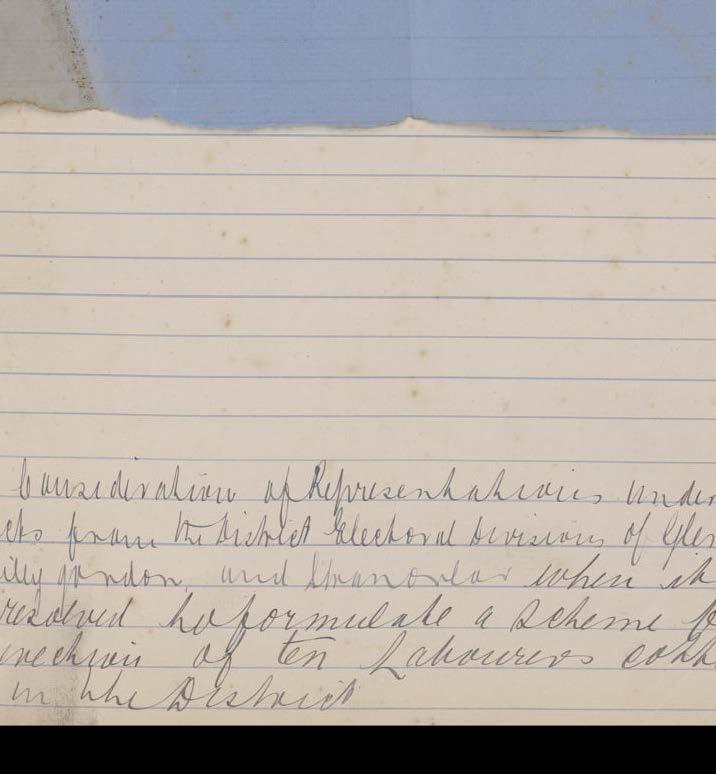 Consideration of Representations under
cts from the District Electoral Divisions of Glen
illygordon, and Stranorlar when it
resolved to formulate a scheme f
erection of ten Labourers cott
in the District